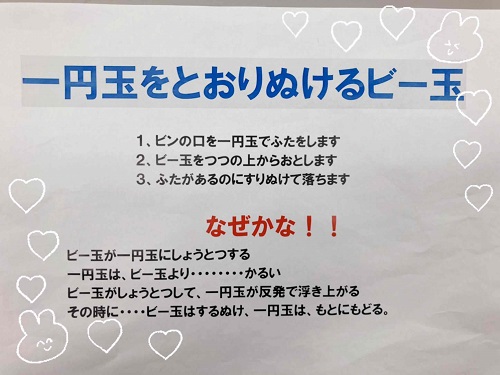 一円玉をとおりぬけるビー玉
1、ビンの口を一円玉でふたをします
2、ビー玉をつつの上からおとします
3、ふたがあるのにすりぬけて落ちます
なぜかな！！
ビー玉が一円玉にしょうとつする
一円玉は、ビー玉より‥‥‥‥かるい
ビー玉がしょうとつして、一円玉が反発で浮き上がる
その時に‥‥ビー玉はするぬけ、一円玉は、もとにもどる。